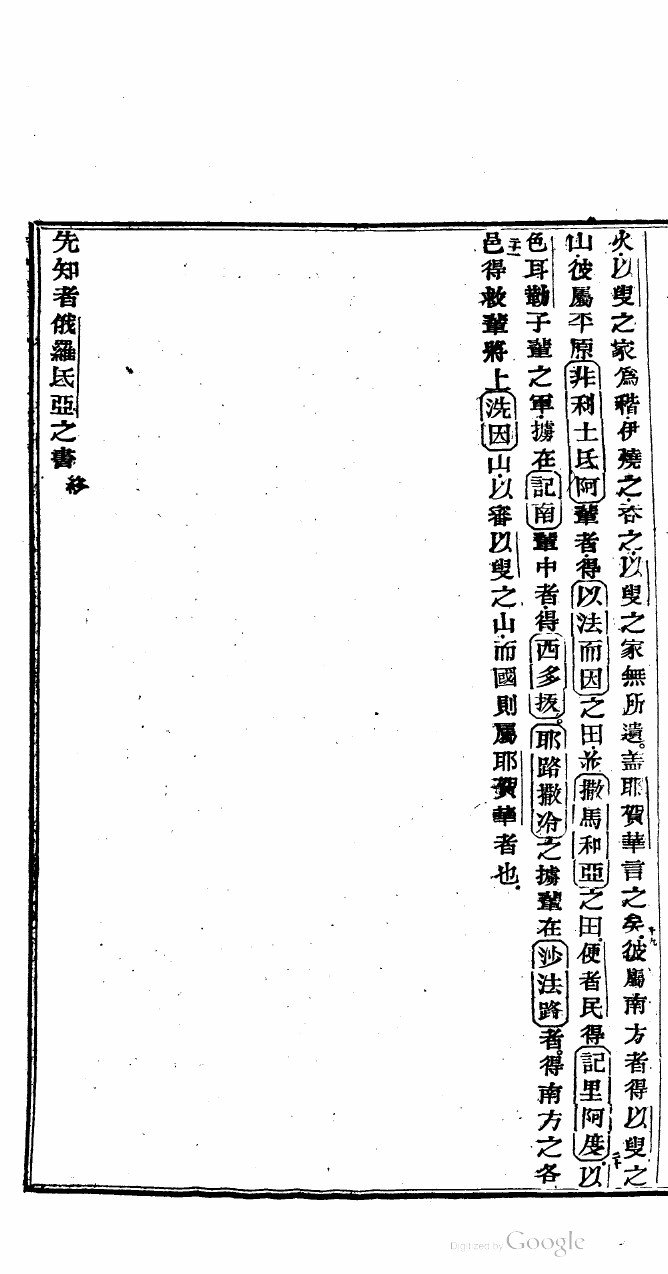 火以叟之家爲稭伊燒之呑之以叟之家無所遺。盖耶賀華言之矣。十九彼屬南方者得以叟之
山彼屬平原非利士氐阿輩者得以法而因之田並撒馬利亞之田便者民得記里阿度。二十以
色耳勒子輩之軍據在記南輩中者得西多扳。耶路撒冷之據輩在沙法路者。得南方之各
邑二十一得救輩將上洗因山以審以叟之山而國則屬耶賀華者也。
先知者俄羅氐亞之書 終
Digitized by Google